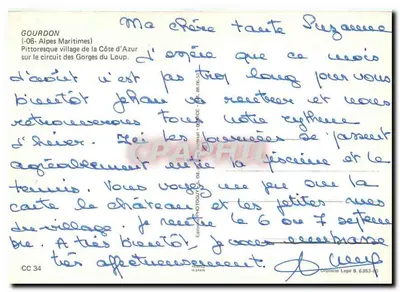 Ma chère tante Suzanne
GOURDON
(-06- Alpes Maritimes)
Pittoresque village de la Côte d'Azur
sur le circuit des Gorges du Loup.
J'espère que ce mois
d'août n'est pas trop long pour vous
bientôt Jehan va rentrer et nous
retrouverons tous notre rythme
d'hiver. Ici les journées se passent
agréablement entre la piscine et le
tennis. Vous voyez un peu sur la
carte le château et les petites rues
du village. Je rentre le 6 ou 7 septem
bre. A très bientôt, je vous embrasse
très affectueusement.
CC 34